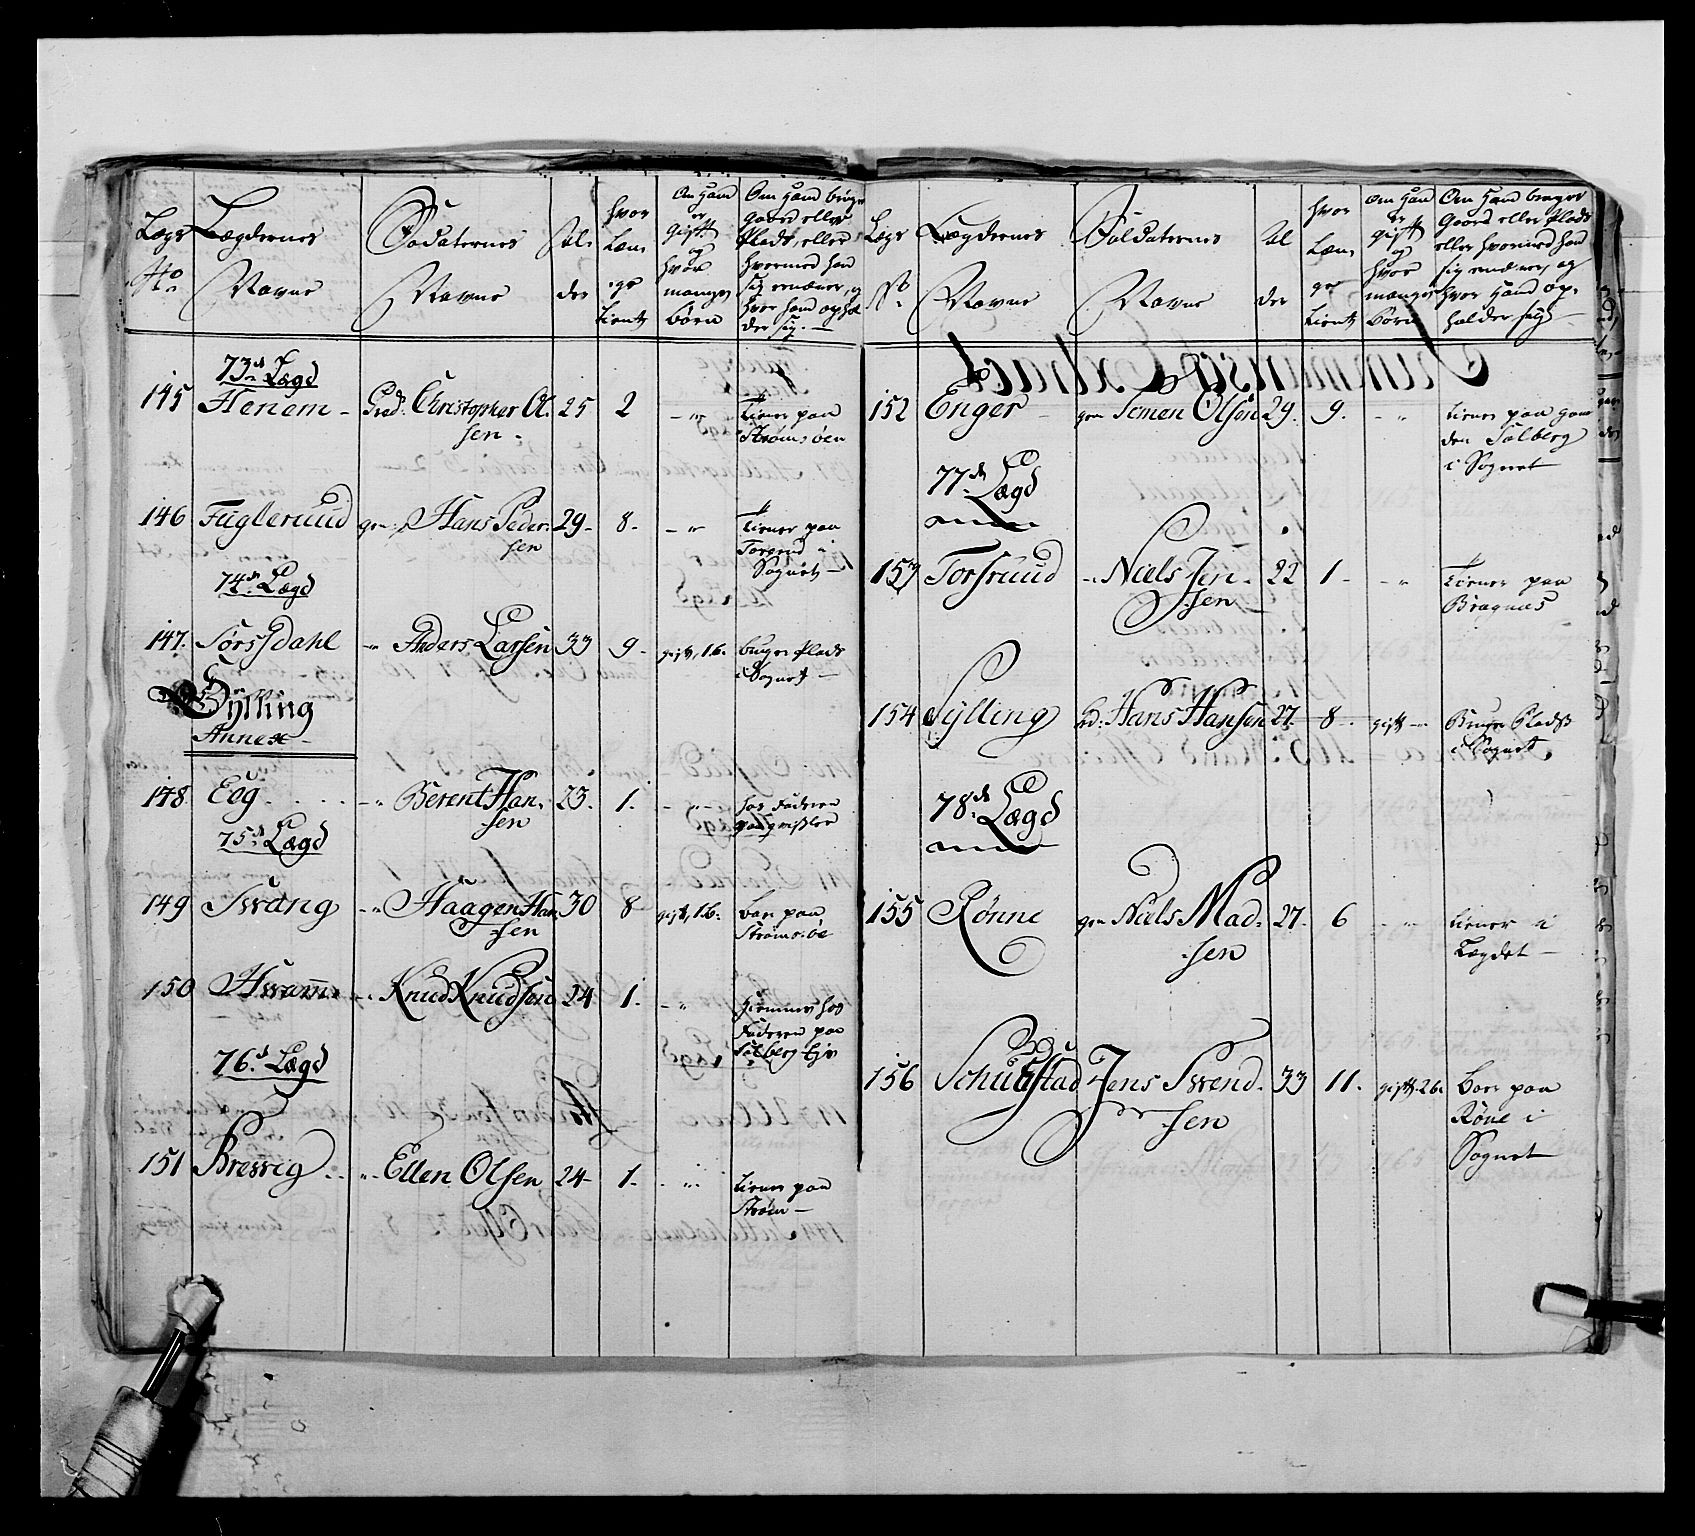 Lægs
No
Lægdernes
Navne
Sodaternes
Navne
Al-
der
hvor
Læn-
ge
tient
Om Hand
er
gift
og
hvor
mange
børn
Om Hand bruger
Gaard eller
Plads, eller
hvormed han
sig ernærer, og
hvor hand ophol-
der sig.
73de Lægd
145 Henem - Gred: Christopher Ol- 25 2 - " tiener paa
sen. Strømsøen
146 Fuglerund gre: Hans Peder- 29- 8- - " tiener paa
sen Torsrud i
Sognet
74de Lægd
147. Sørssdahl - " Anders Larsen 33 9- gift, 1 b. bruger Plads
i Sognet
Sylling
Annex
148 Eeg - " Berent Han- 23. 1. - " hos Faderen
sen
75de Lægd
149 Svang - " Haagen Han 30 8 gift, 1 b. boer paa
sen Strømsøe
150 Hvam - " Knud Knudsen 24 1. - " hiemme hos
Faderen paa
Solberg Eje
76de Lægd
151 Bresvig - " Ellen Olsen 24- 1- " tiener paa
Strøm
Lægs
No
Lægdernes
Navne
Soldaternes
Navne
Al
der
hvor
Læn-
ge
tient
Om Hand
er
gift
og
hvor
mange
Børn
Om Hand bruger
Gaard eller Plads
eller hvormed han
sig ernærer, og
hvor Hand op-
holder sig
152 Enger - gre Simen Olsen 29. 9. - " tiener paa Gaar
den Solberg
i Sognet
77de Lægd
153 Torsruud - " Niels Jen- 22 1- - " tiener paa
sen Bragnæs
154 Sylling Gd: Hans Hansen 27. 8. gift - Bruger Plads
i Sognet
78de Lægd
155 Rønne gre Niels Mad- 27. 6 - " tiener i
sen Lægdet
156 Schuestad Jens Svend- 33 11. gift 2 b. Boer paa
sen Røne i
Sognet